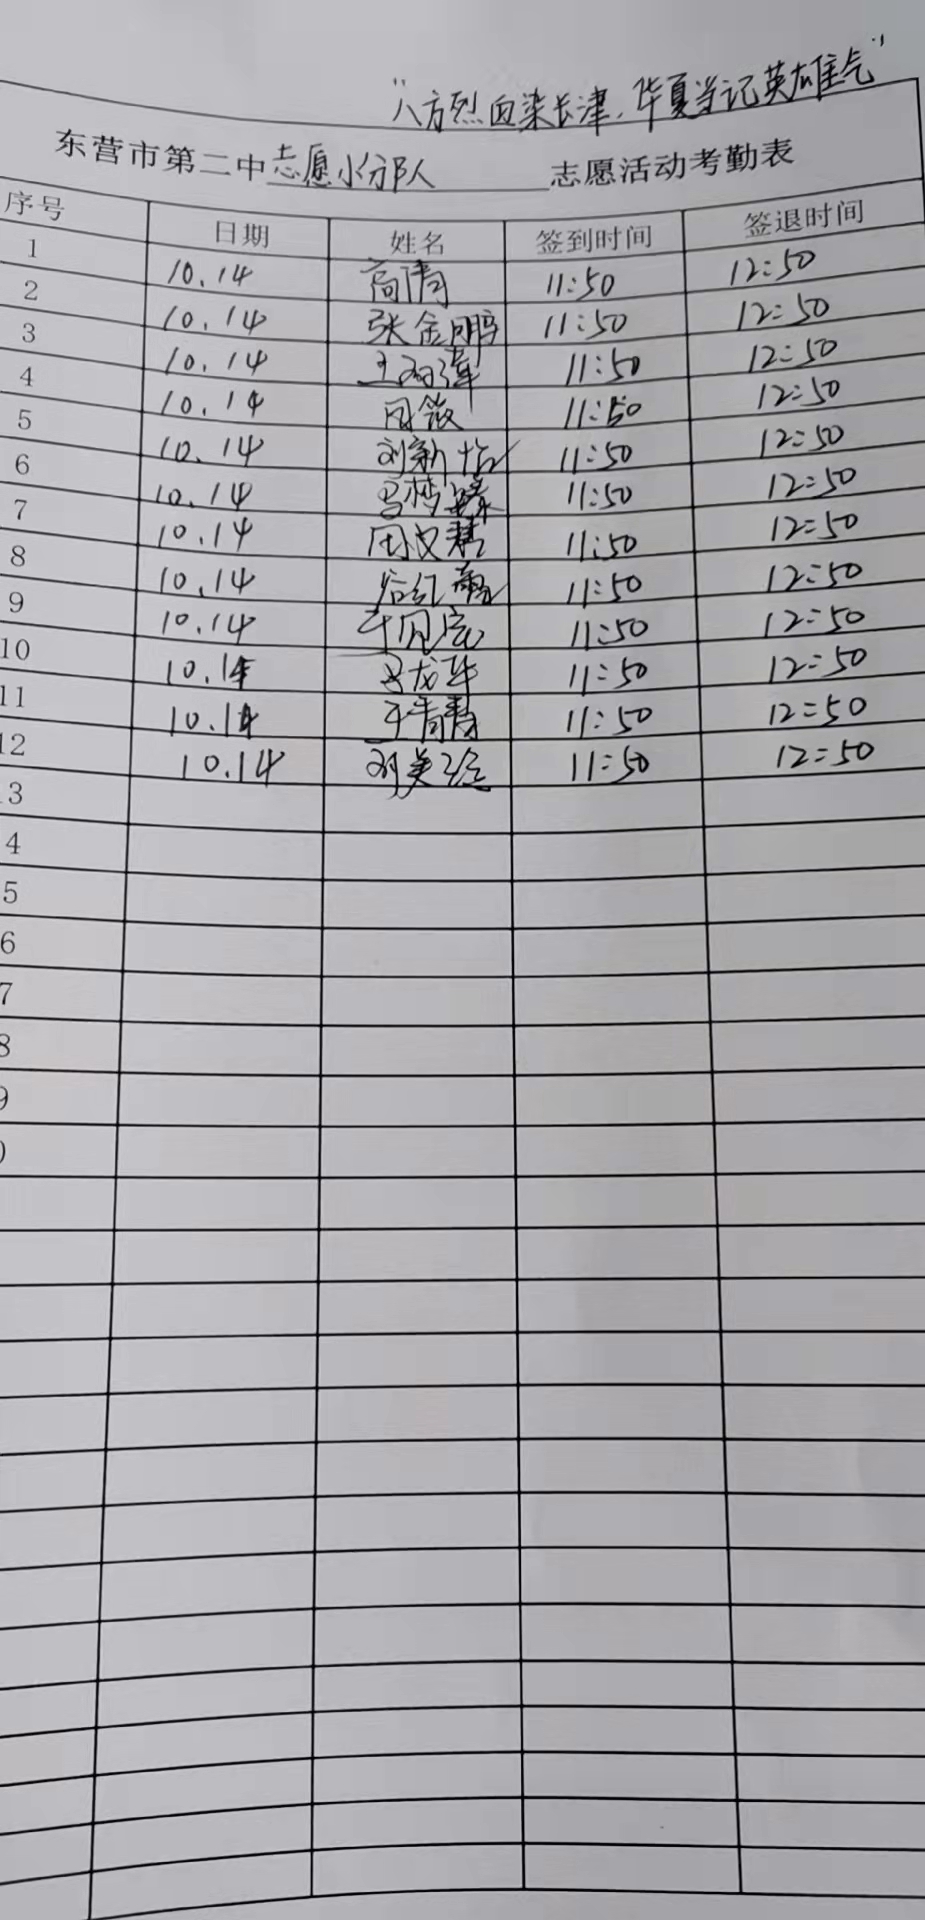 "八方烈血染长津,华夏当记英雄气"
东营市第二中志愿小分队 志愿活动考勤表
序号 日期 姓名 签到时间 签退时间
1 10.14 高倩 11:50 12:50
2 10.14 张金鹏 11:50 12:50
3 10.14 11:50 12:50
4 10.14 11:50 12:50
5 10.14 刘新怡 11:50 12:50
6 10.14 马梦 11:50 12:50
7 10.14 周文 11:50 12:50
8 10.14 11:50 12:50
9 10.14 11:50 12:50
10 10.14 马龙华 11:50 12:50
11 10.14 王青青 11:50 12:50
12 10.14 刘美 11:50 12:50
3
4
5
6
7
8
9